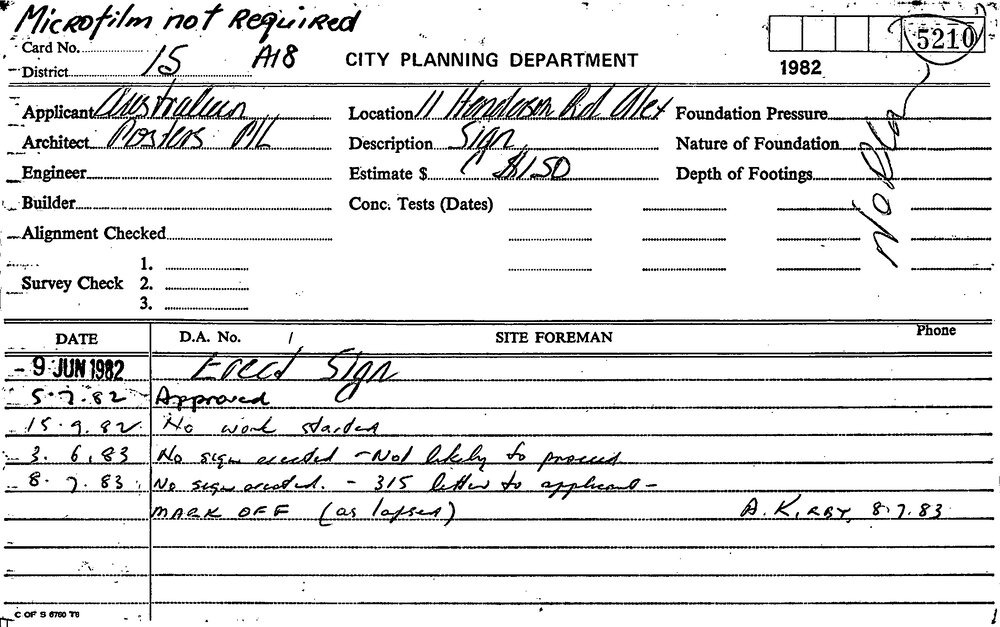 Microfilm not Required
Card No.
5210
District 15 A18 CITY PLANNING DEPARTMENT 1982
Applicant Australian Location 11 Henderson Rd Alex Foundation Pressure
Architect Posters P/L Description Sign Nature of Foundation
Engineer Estimate $ $150 Depth of Footings
Builder Conc. Tests (Dates)
Alignment Checked
No
Survey Check 1.
2.
3.
DATE D.A. No. SITE FOREMAN Phone
- 9 JUN 1982 Erect Sign
5.7.82 Approved
15.9.82 No work started
3.6.83 No sign erected - Not likely to proceed
8.7.83 No sign erected. - 315 letter to applicant -
MARK OFF (as lapsed) A. KIRBY, 8.7.83
C OF S 6760 T8